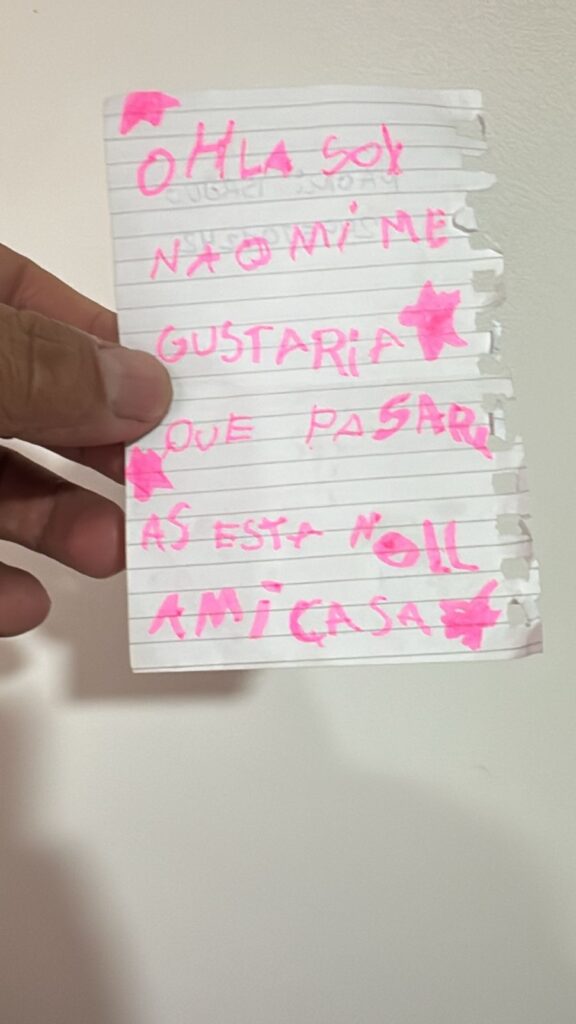 OHLA SOY
NAOMI ME
GUSTARIA
QUE PASAR
AS ESTA NOLL
A MI CASA